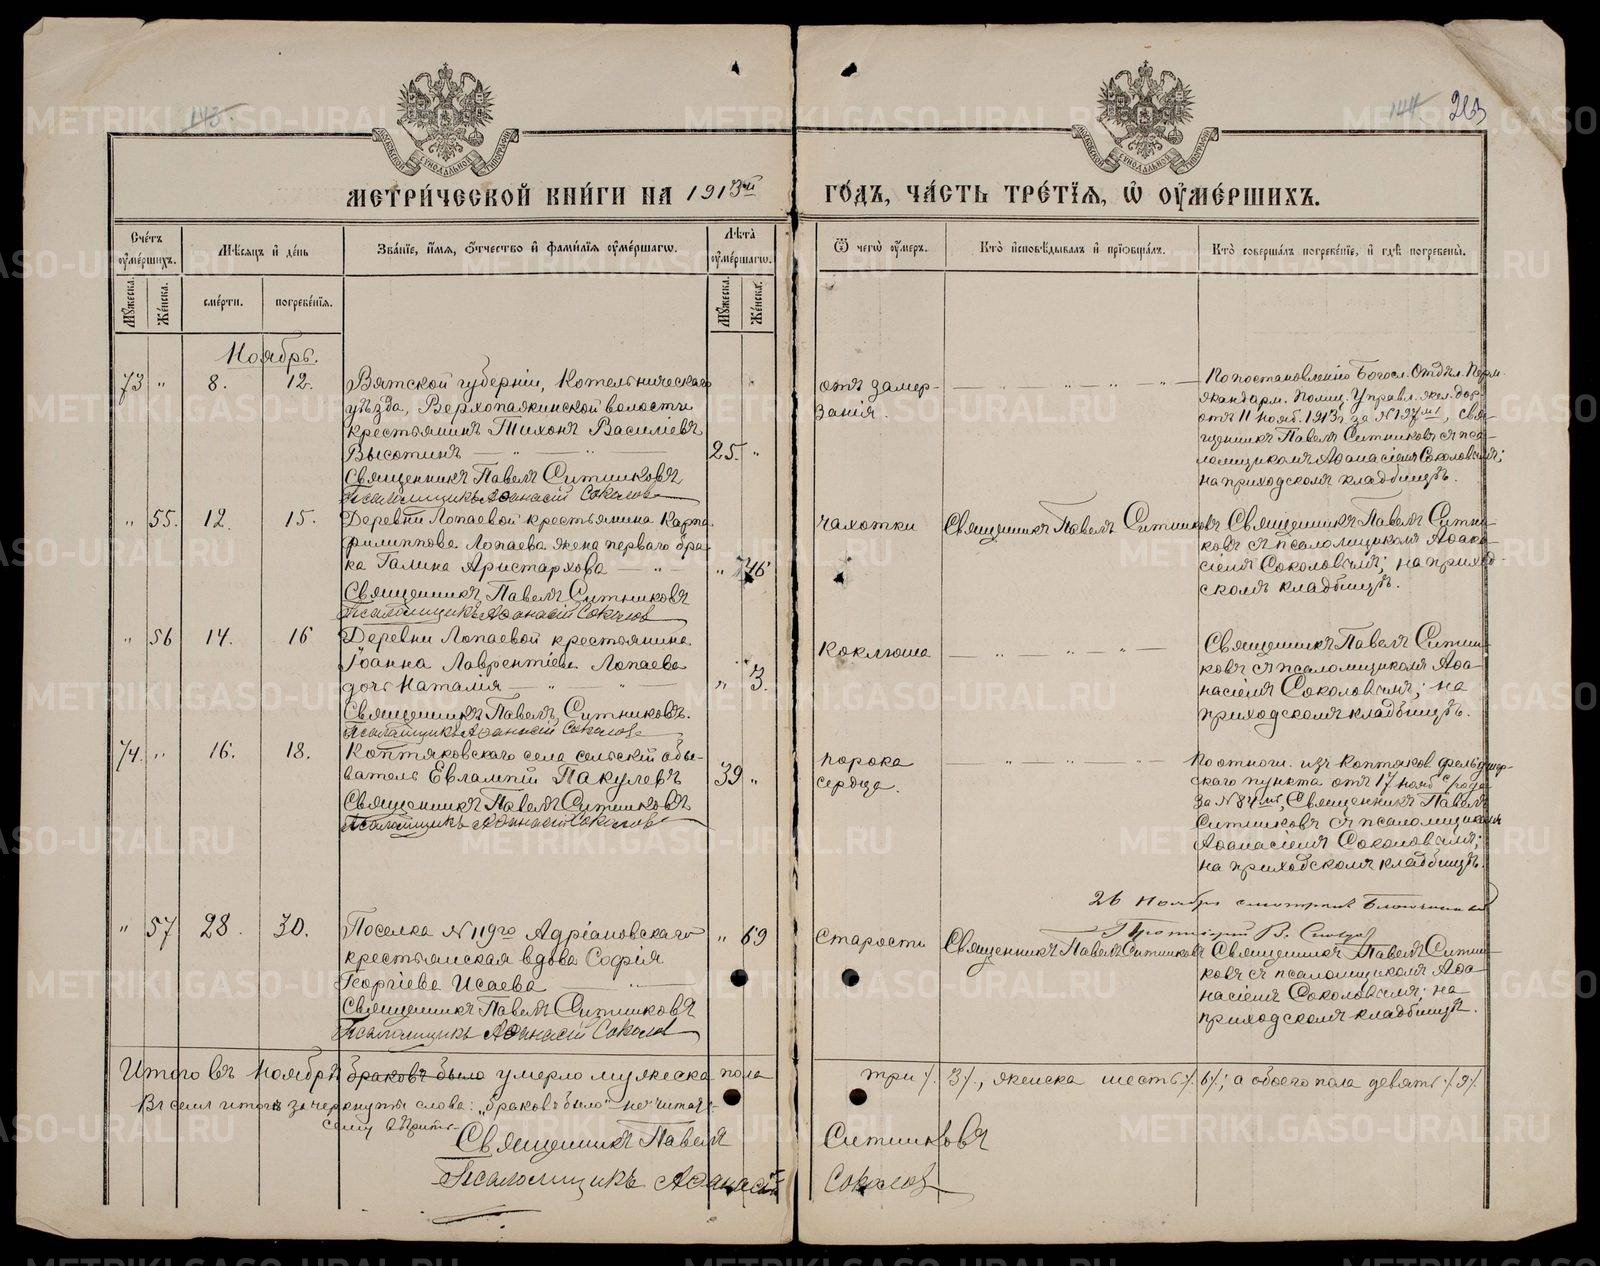 143.
144.
МЕТРИ́ЧЕСКОЙ КНИ́ГИ НА 1913й ГО́ДЪ, ЧА́СТЬ ТРЕ́ТЇѦ, Ѡ҆ ОУ҆МЕ́РШИХЪ.
Сче́тъ оу҆ме́ршихъ.
Мѣ́сѧцъ и҆ де́нь
Зва́нїе, и҆́мѧ, ѻ҆́тчество и҆ фами́лїѧ оу҆ме́ршагѡ.
Лѣ́та оу҆ме́ршагѡ.
Ѿ чегѡ̀ оу҆́меръ.
Кто̀ и҆сповѣ́дывалъ и҆ прїѡбща́лъ.
Кто̀ соверша́лъ погребе́нїе, и҆ гдѣ̀ погребены̀.
Мꙋ́жеска. Же́нска. сме́рти. погребе́нїѧ. Мꙋ́жеска. Же́нска.
Ноябрь.
73 " 8. 12.
Вятской губерніи, Котельническаго
уѣзда, Верхопаякинской волости
крестьянинъ Тихонъ Василіевъ
Высотинъ — " — " — 25. "
Священникъ Павелъ Ситниковъ
Псаломщикъ Аѳанасій Соколовъ
отъ замер-
занія.
По постановленію Богосл. Отдѣл. Перм.
жандарм. Полиц. Управл. жел. дор.
отъ 11 нояб. 1913г. за № 197мъ, Свя-
щенникъ Павелъ Ситниковъ съ пса-
ломщикомъ Аѳанасіемъ Соколовымъ;
на приходскомъ кладбищѣ.
" 55. 12. 15.
Деревни Лопаевой крестьянина Карпа
Филиппова Лопаева жена перваго бра-
ка Галина Аристархова — " — " 46
Священникъ Павелъ Ситниковъ
Псаломщикъ Аѳанасій Соколовъ
чахотки
Священникъ Павелъ Ситниковъ
Священникъ Павелъ Ситни-
ковъ съ псаломщикомъ Аѳана-
сіемъ Соколовымъ; на приход-
скомъ кладбищѣ.
" 56 14. 16
Деревни Лопаевой крестьянина
Іоанна Лаврентіева Лопаева
дочь Наталія — " — " — " 3.
Священникъ Павелъ Ситниковъ.
Псаломщикъ Аѳанасій Соколовъ
коклюша
Священникъ Павелъ Ситни-
ковъ съ псаломщикомъ Аѳа-
насіемъ Соколовымъ; на
приходскомъ кладбищѣ.
74. " 16. 18.
Коптяковскаго села сельскій обы-
ватель Евлампій Пакулевъ 39 "
Священникъ Павелъ Ситниковъ
Псаломщикъ Аѳанасій Соколовъ
порока
сердца.
По отнош. изъ Коптяков. фельдшер-
скаго пункта отъ 17 нояб. с/года
за № 84мъ, Священникъ Павелъ
Ситниковъ съ псаломщикомъ
Аѳанасіемъ Соколовымъ;
на приходскомъ кладбищѣ.
26 Ноября смотрѣлъ Благочинный
Протоіерей В.
" 57 28. 30.
Поселка № 119го Адріановскаго
крестьянская вдова Софія
Георгіева Исаева — " — " 69
Священникъ Павелъ Ситниковъ
Псаломщикъ Аѳанасій Соколовъ
старости
Священникъ Павелъ Ситниковъ
Священникъ Павелъ Ситни-
ковъ съ псаломщикомъ Аѳа-
насіемъ Соколовымъ; на
приходскомъ кладбищѣ.
Итого въ Ноябрѣ браковъ было умерло мужеска пола три /. 3 /., женска шесть /. 6 /.; а обоего пола девять /. 9 /.
Въ семъ итогѣ зачеркнутыя слова: „браковъ было" не читать
сему вѣрить
Священникъ Павелъ Ситниковъ
Псаломщикъ Аѳанасій Соколовъ
METRIKI.GASO-URAL.RU